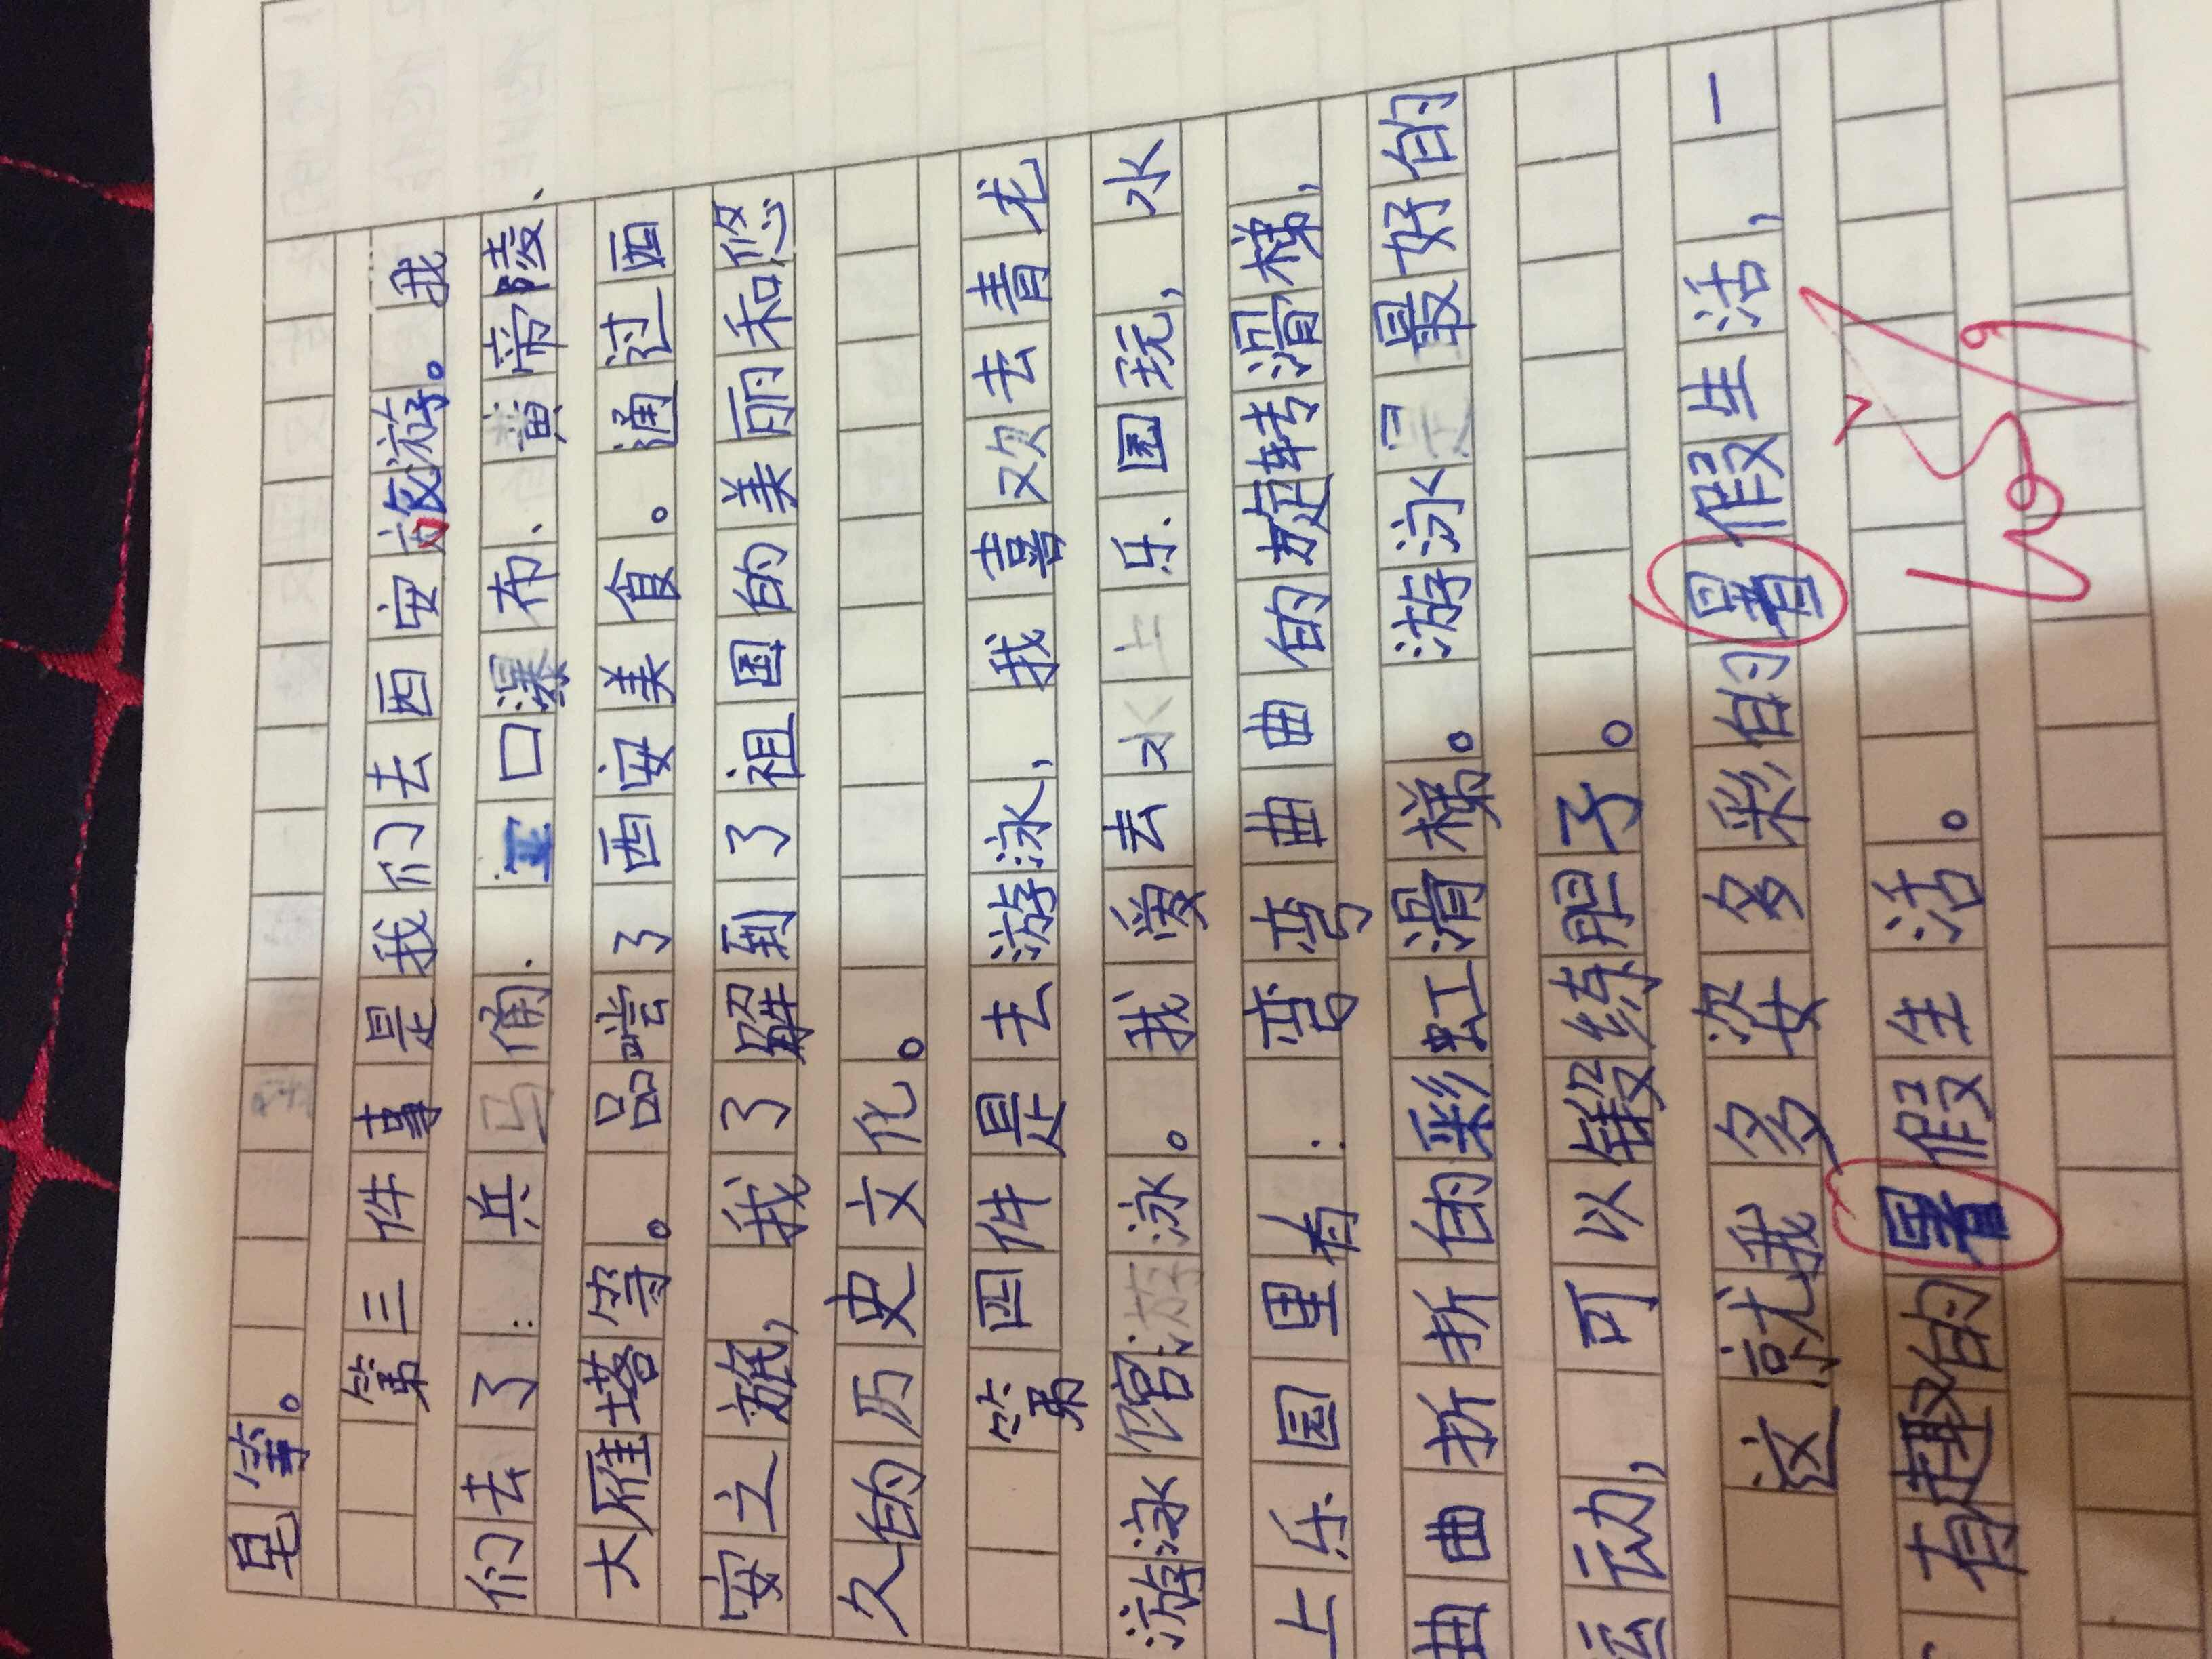 皂等。
第三件事是我们去西安旅游。我
们去了:兵马俑、壶口瀑布、黄帝陵、
大雁塔等。品尝了西安美食。通过西
安之旅,我了解到了祖国的美丽和悠
久的历史文化。
第四件是去游泳,我喜欢去青龙
游泳馆游泳。我爱去水上乐园玩,水
上乐园里有:弯弯曲曲的旋转滑梯,
曲曲折折的彩虹滑梯。游泳是最好的
运动,可以锻练胆子。
这就我多姿多彩的暑假生活,一
个有趣的暑假生活。